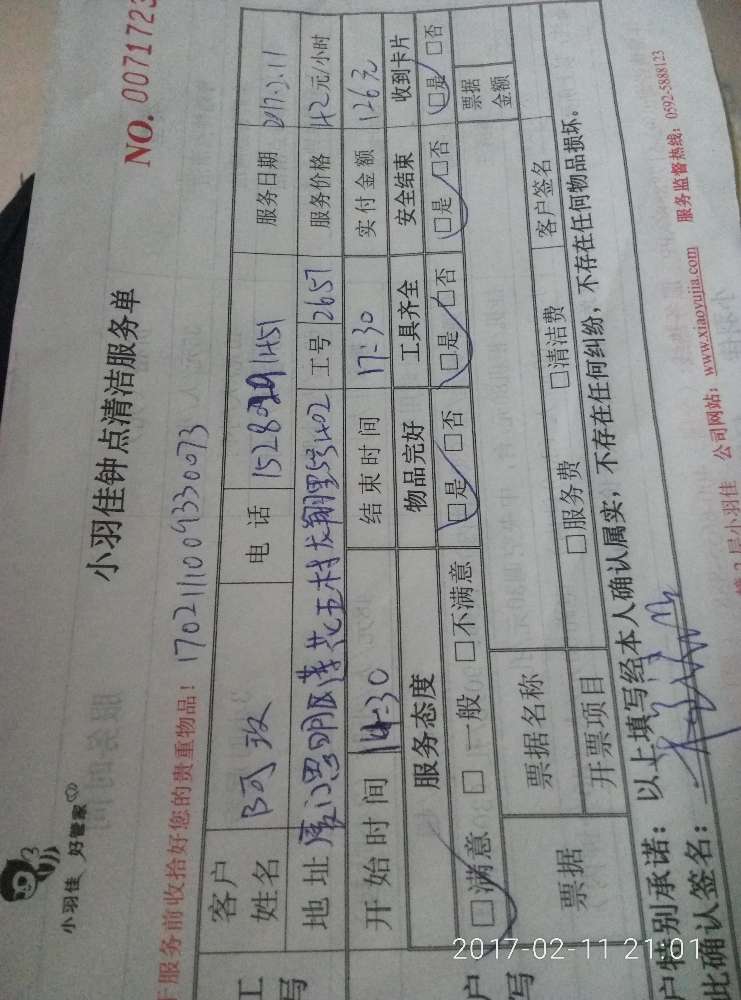 小羽佳 好管家
小羽佳钟点清洁服务单
NO. 0071723
服务前收拾好您的贵重物品! 1702111009330073
客户姓名 阿玫 电话 服务日期 2017.2.11
地址 厦门思明区莲花五村龙翔里 402 工号 2657 服务价格 42元/小时
开始时间 14:30 结束时间 17:30 实付金额 126元
服务态度 物品完好 工具齐全 安全结束 收到卡片
□满意 □一般 □不满意 □是 □否 □是 □否 □是 □否 □是 □否
票据 票据名称 票据金额
开票项目 □服务费 □清洁费 客户签名
户特别承诺: 以上填写经本人确认属实,不存在任何纠纷,不存在任何物品损坏。
此确认签名:
楼2层小羽佳 公司网站: www.xiaoyujia.com 服务监督热线: 0592-5888123
2017-02-11 21:01